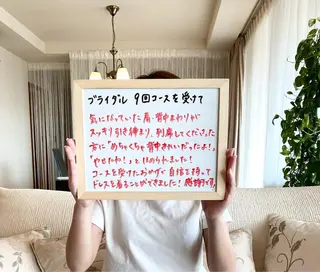 ブライダル 9回コースを受けて
気になっていた肩・背中まわりが
スッキリ引き締まり、列席してくださった
方に「めちゃくちゃ背中きれいだったよ!」
「やせたね!」とほめられました!
コースを受けたおかげで自信を持って
ドレスを着ることができました!感謝です!